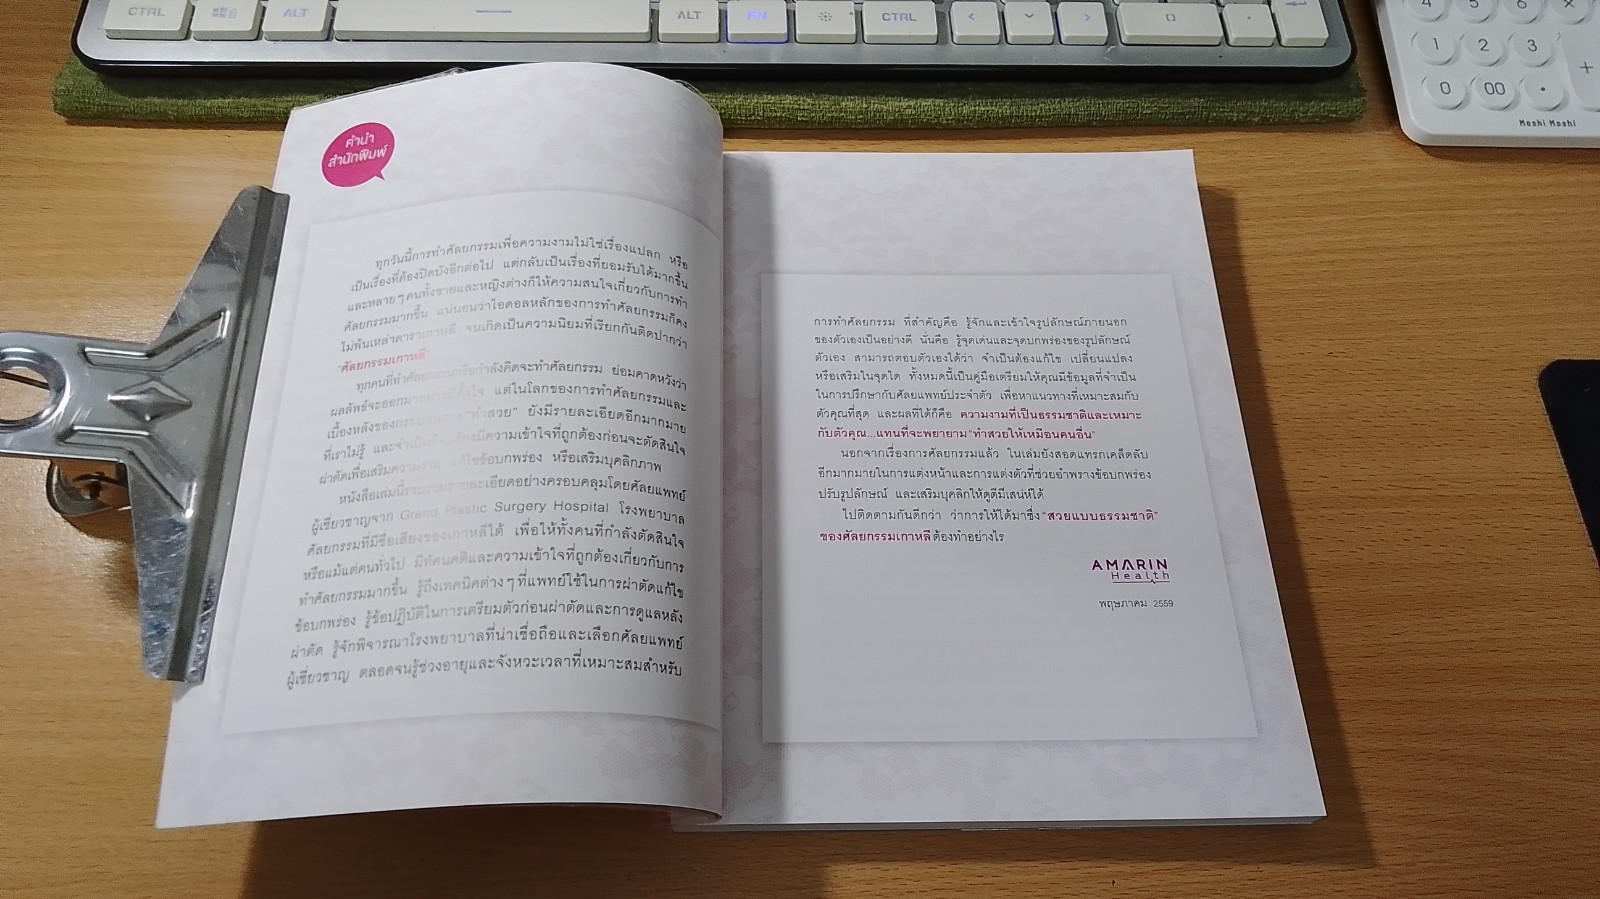 CTRL
ALT
ALT
EN
CTRL
4 5 6 ×
1 2 3
+
0 00 •
Moshi Moshi
คำนำ
สำนักพิมพ์
ทุกวันนี้การทำศัลยกรรมเพื่อความงามไม่ใช่เรื่องแปลก หรือ
เป็นเรื่องที่ต้องปิดบังอีกต่อไป แต่กลับเป็นเรื่องที่ยอมรับได้มากขึ้น
และหลายๆ คนทั้งชายและหญิงต่างก็ให้ความสนใจเกี่ยวกับการทำ
ศัลยกรรมมากขึ้น แน่นอนว่าไอดอลหลักของการทำศัลยกรรมก็คง
ไม่พ้นเหล่าดาราเกาหลี จนเกิดเป็นความนิยมที่เรียกกันติดปากว่า
“ศัลยกรรมเกาหลี”
ทุกคนที่ทำศัลยกรรมหรือกำลังคิดจะทำศัลยกรรม ย่อมคาดหวังว่า
ผลลัพธ์จะออกมาอย่างที่ตั้งใจ แต่ในโลกของการทำศัลยกรรมและ
เบื้องหลังของกระบวนการ “ทำสวย” ยังมีรายละเอียดอีกมากมาย
ที่เราไม่รู้ และจำเป็นที่จะต้องมีความเข้าใจที่ถูกต้องก่อนจะตัดสินใจ
ผ่าตัดเพื่อเสริมความงาม แก้ไขข้อบกพร่อง หรือเสริมบุคลิกภาพ
หนังสือเล่มนี้รวบรวมรายละเอียดอย่างครอบคลุมโดยศัลยแพทย์
ผู้เชี่ยวชาญจาก Grand Plastic Surgery Hospital โรงพยาบาล
ศัลยกรรมที่มีชื่อเสียงของเกาหลีใต้ เพื่อให้ทั้งคนที่กำลังตัดสินใจ
หรือแม้แต่คนทั่วไป มีทัศนคติและความเข้าใจที่ถูกต้องเกี่ยวกับการ
ทำศัลยกรรมมากขึ้น รู้ถึงเทคนิคต่างๆ ที่แพทย์ใช้ในการผ่าตัดแก้ไข
ข้อบกพร่อง รู้ข้อปฏิบัติในการเตรียมตัวก่อนผ่าตัดและการดูแลหลัง
ผ่าตัด รู้จักพิจารณาโรงพยาบาลที่น่าเชื่อถือและเลือกศัลยแพทย์
ผู้เชี่ยวชาญ ตลอดจนรู้ช่วงอายุและจังหวะเวลาที่เหมาะสมสำหรับ
การทำศัลยกรรม ที่สำคัญคือ รู้จักและเข้าใจรูปลักษณ์ภายนอก
ของตัวเองเป็นอย่างดี นั่นคือ รู้จุดเด่นและจุดบกพร่องของรูปลักษณ์
ตัวเอง สามารถตอบตัวเองได้ว่า จำเป็นต้องแก้ไข เปลี่ยนแปลง
หรือเสริมในจุดใด ทั้งหมดนี้เป็นคู่มือเตรียมให้คุณมีข้อมูลที่จำเป็น
ในการปรึกษากับศัลยแพทย์ประจำตัว เพื่อหาแนวทางที่เหมาะสมกับ
ตัวคุณที่สุด และผลที่ได้ก็คือ ความงามที่เป็นธรรมชาติและเหมาะ
กับตัวคุณ...แทนที่จะพยายาม “ทำสวยให้เหมือนคนอื่น”
นอกจากเรื่องการศัลยกรรมแล้ว ในเล่มยังสอดแทรกเคล็ดลับ
อีกมากมายในการแต่งหน้าและการแต่งตัวที่ช่วยอำพรางข้อบกพร่อง
ปรับรูปลักษณ์ และเสริมบุคลิกให้ดูดีมีเสน่ห์ได้
ไปติดตามกันดีกว่า ว่าการให้ได้มาซึ่ง “สวยแบบธรรมชาติ”
ของศัลยกรรมเกาหลีต้องทำอย่างไร
AMARIN
Health
พฤษภาคม 2559